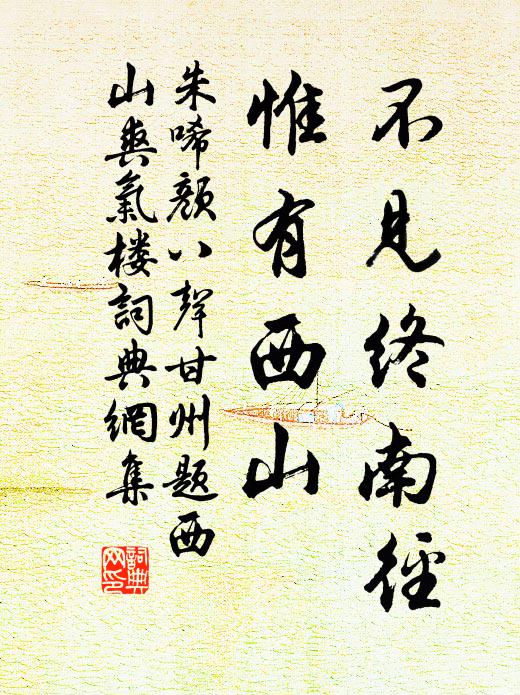 不見終南徑
惟有西山
朱唏顏八聲甘州題西
山爽氣樓詞典網集
詞典網印